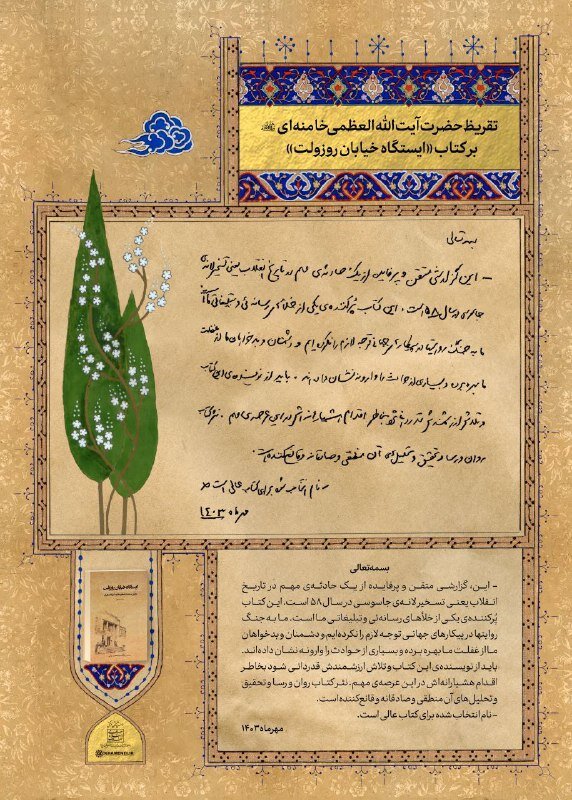 تقریظ حضرت آیت‌الله العظمی خامنه‌ای
بر کتاب «ایستگاه خیابان روزولت»
بسمه تعالی
- این گزارشی متقن و پرفایده از یک حادثه‌ی مهم در تاریخ انقلاب یعنی تسخیر لانه‌ی
جاسوسی در سال ۵۸ است. این کتاب پُرکننده‌ی یکی از خلأهای رسانه‌ئی و تبلیغاتی ما است.
ما به جنگ روایتها در پیکارهای جهانی توجه لازم را نکرده‌ایم و دشمنان و بدخواهان ما از غفلت
ما بهره برده و بسیاری از حوادث را وارونه نشان داده‌اند. باید از نویسنده‌ی این کتاب
و تلاش ارزشمندش قدردانی شود بخاطر اقدام هشیارانه‌اش در این عرصه‌ی مهم. نثر کتاب
روان و رسا و تحقیق و تحلیل‌های آن منطقی و صادقانه و قانع‌کننده است.
- نام انتخاب شده برای کتاب عالی است
مهرماه ۱۴۰۳
بسمه‌تعالی
- این، گزارشی متقن و پرفایده از یک حادثه‌ی مهم در تاریخ
انقلاب یعنی تسخیر لانه‌ی جاسوسی در سال ۵۸ است. این کتاب
پُرکننده‌ی یکی از خلأهای رسانه‌ئی و تبلیغاتی ما است. ما به جنگ
روایتها در پیکارهای جهانی توجه لازم را نکرده‌ایم و دشمنان و بدخواهان
ما از غفلت ما بهره برده و بسیاری از حوادث را وارونه نشان داده‌اند.
باید از نویسنده‌ی این کتاب و تلاش ارزشمندش قدردانی شود بخاطر
اقدام هشیارانه‌اش در این عرصه‌ی مهم. نثر کتاب روان و رسا و تحقیق
و تحلیل‌های آن منطقی و صادقانه و قانع‌کننده است.
- نام انتخاب شده برای کتاب عالی است.
مهرماه ۱۴۰۳
ایستگاه خیابان روزولت
KHAMENEI.IR